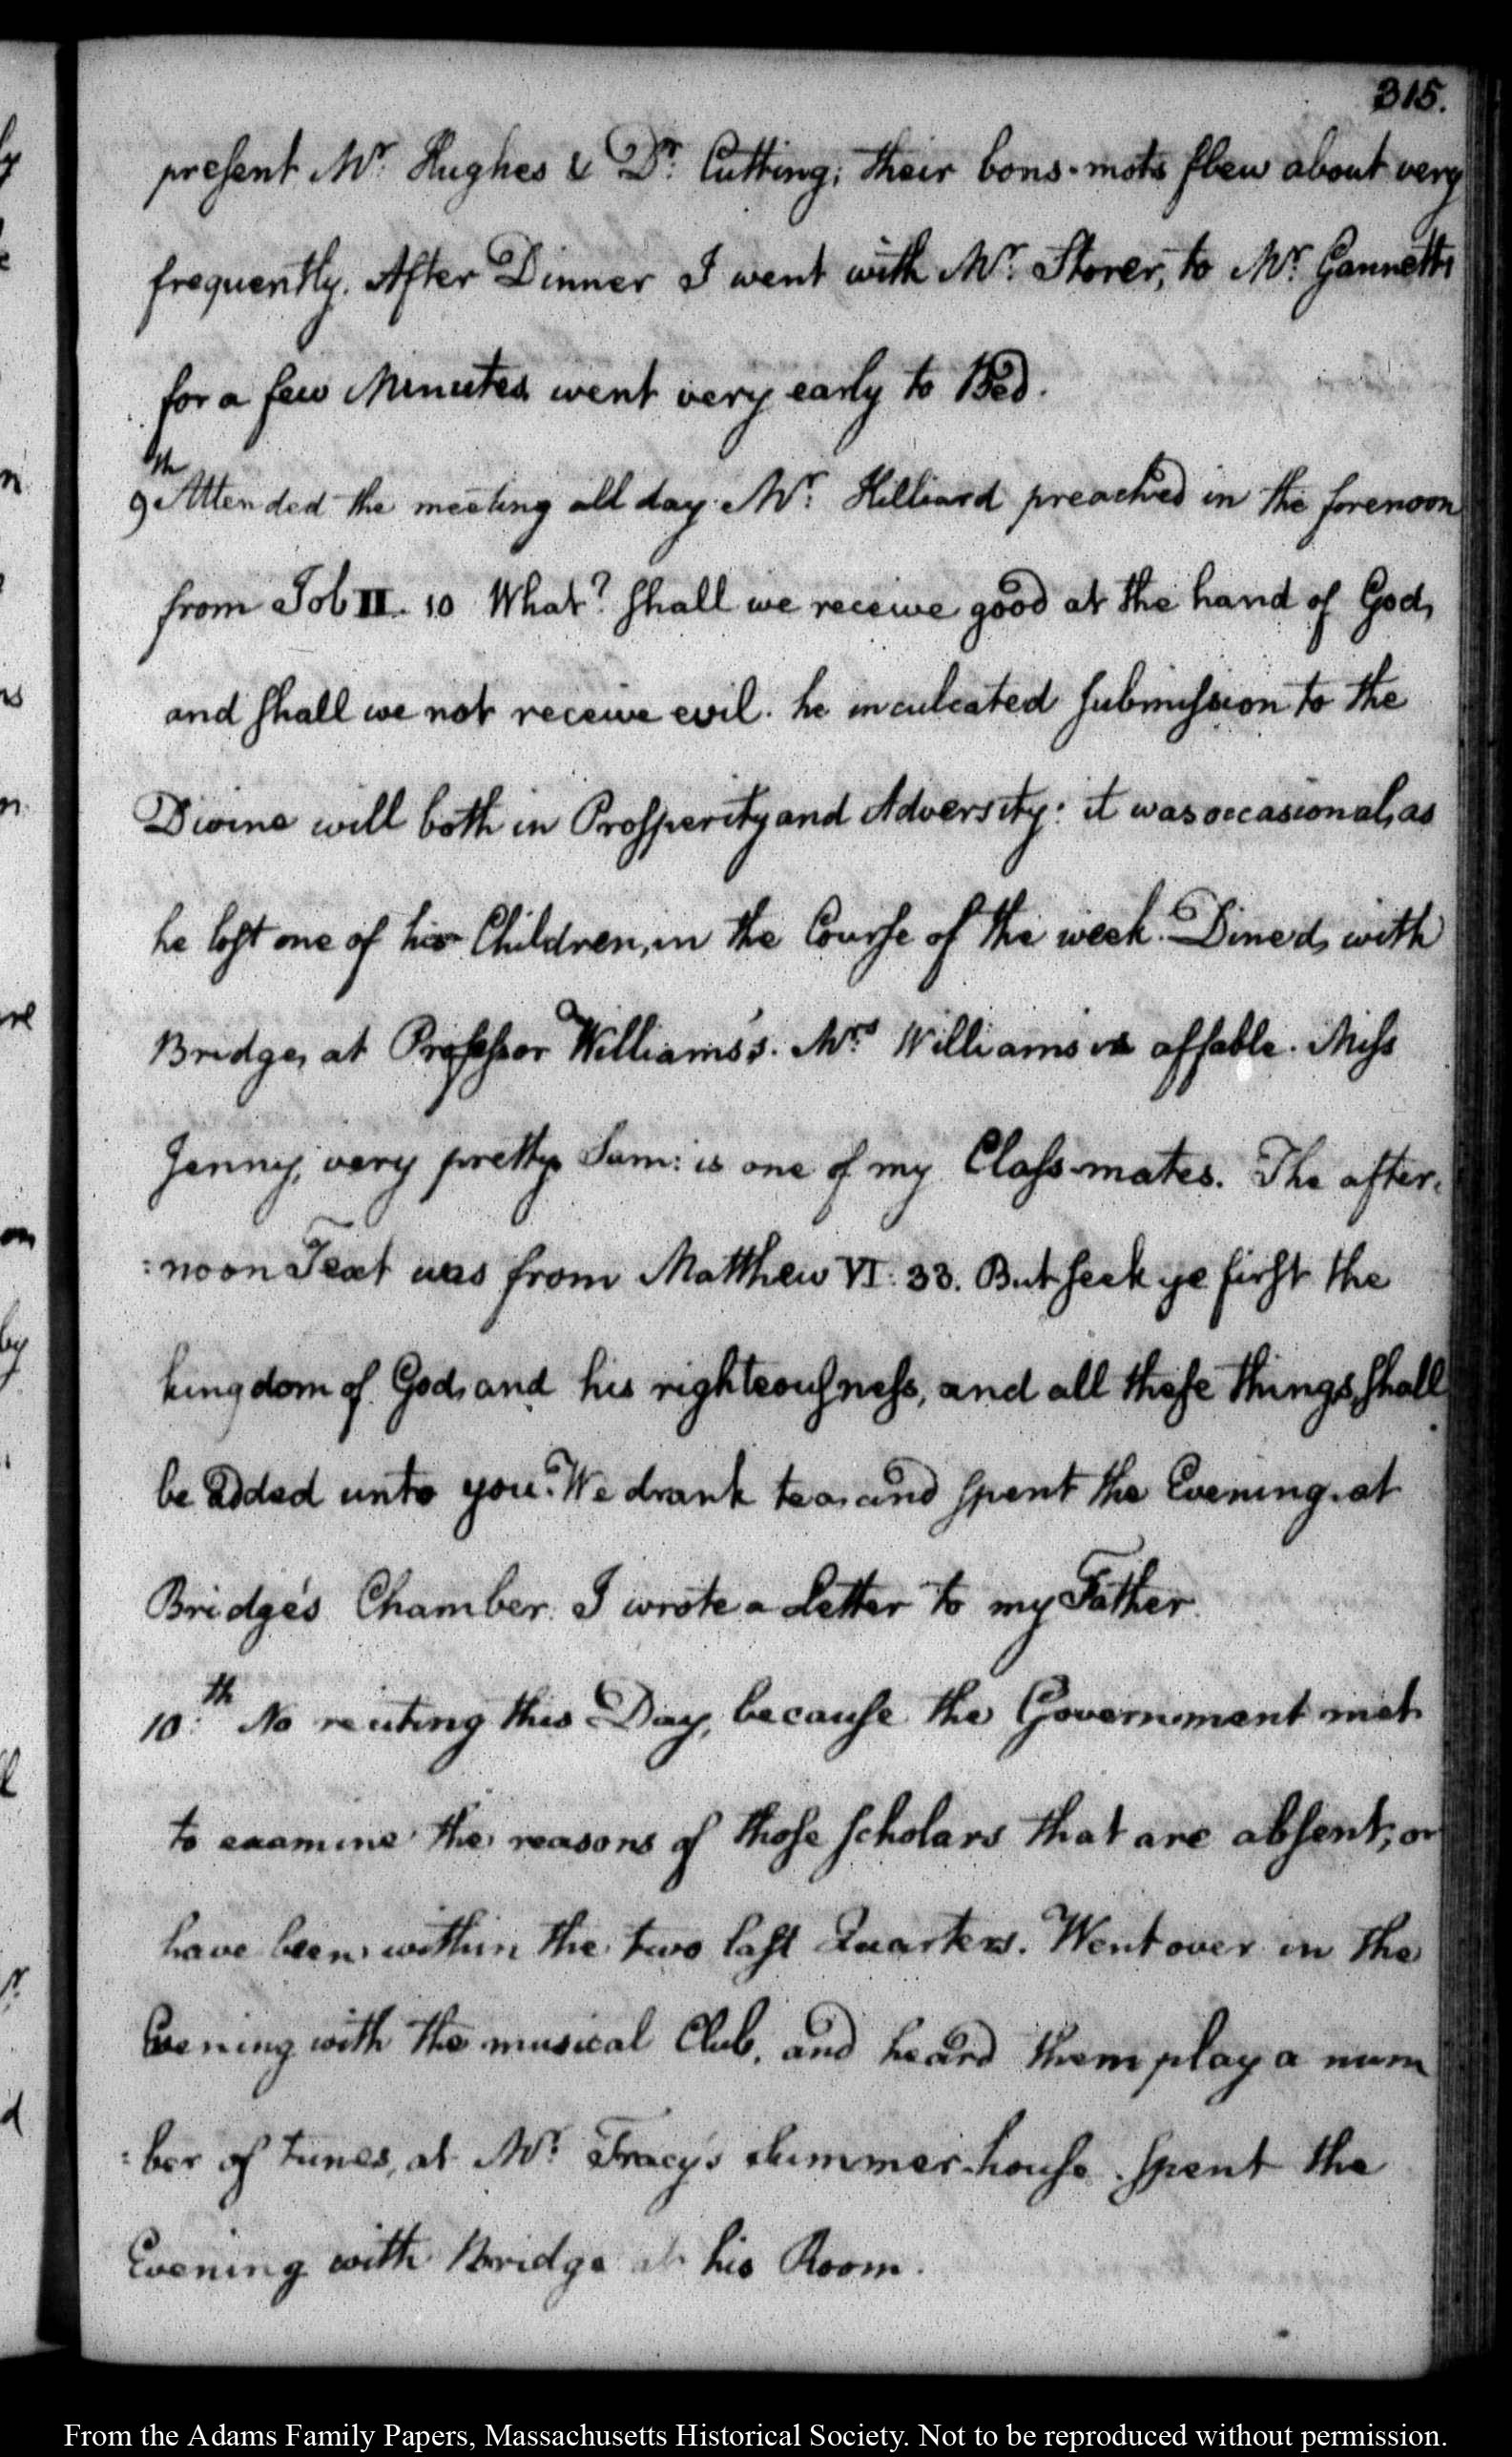 315.
present Mr. Hughes & Dr. Cutting; their bons-mots flew about very
frequently. After Dinner I went with Mr. Storer, to Mr. Gannetts
for a few Minutes went very early to Bed.
9th Attended the meeting all day. Mr. Hilliard preached in the forenoon
from Job II. 10 What? shall we receive good at the hand of God,
and shall we not receive evil. he inculcated submission to the
Divine will both in Prosperity and Adversity: it was occasional, as
he lost one of his Children, in the Course of the week. Dined, with
Bridge, at Professor Williams's. Mrs. Williams is affable. Miss
Jenny, very pretty, Sam: is one of my Class-mates. The after-
:noon Text was from Matthew VI: 33. But seek ye first the
kingdom of God, and his righteousness, and all these things, shall
be added unto you. We drank tea, and spent the Evening, at
Bridge's Chamber. I wrote a Letter to my Father.
10:th No reciting this Day, because the Government met
to examine the reasons of those scholars that are absent, or
have been, within the two last Quarters. Went over in the
Evening with the musical Club, and heard them play a num
:ber of tunes, at Mr. Tracy's summer-house. spent the
Evening with Bridge at his Room.
From the Adams Family Papers, Massachusetts Historical Society. Not to be reproduced without permission.